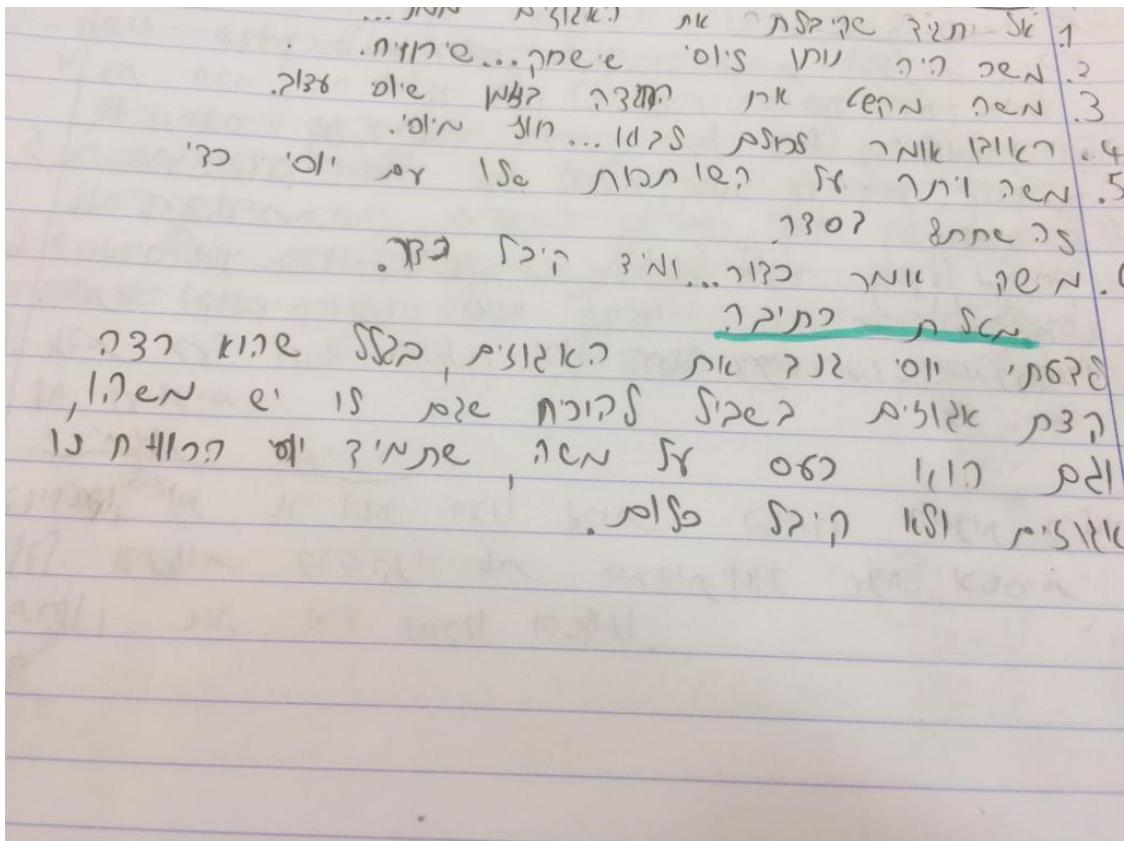 1. אל יתגיד שקיבלתה את האגוזים ממני...
2. משה היה נותן ליוסי שישחק... שירוויח.
3. משה מקשט את החדה בזמן שיוסי עצוב.
4. ראובן אומר לכולם לבוא... חוץ מיוסי.
5. משה ויתר על השותפות שלו עם יוסי כדי
זה שחתם בסדר.
משה אמר כדור... ומיד קיבל כדור.
מטלת כתיבה
לדעתי יוסי גנב את האגוזים, בגלל שהוא רצה
קצת אגוזים בשביל להוכיח שגם לו יש משהו,
וגם הוא כעס על משה, שתמיד יוסי הרוויח לו
אגוזים ולא קיבל כלום.